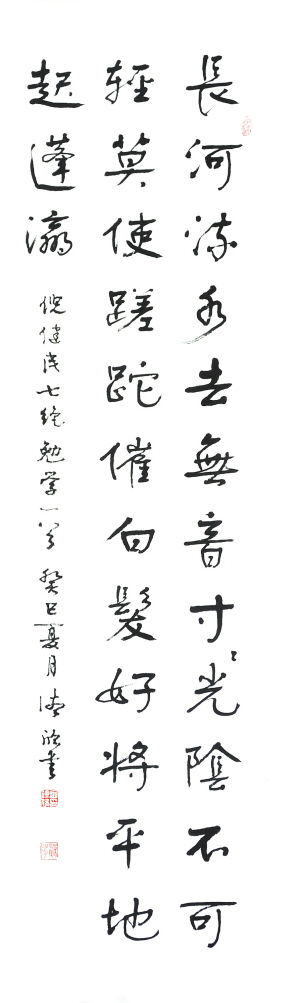 長河流水去無音寸〻光陰不可
輕莫使蹉跎催白髮好將平地
起蓬瀛
倪健民七絕勉学一首 癸巳夏月